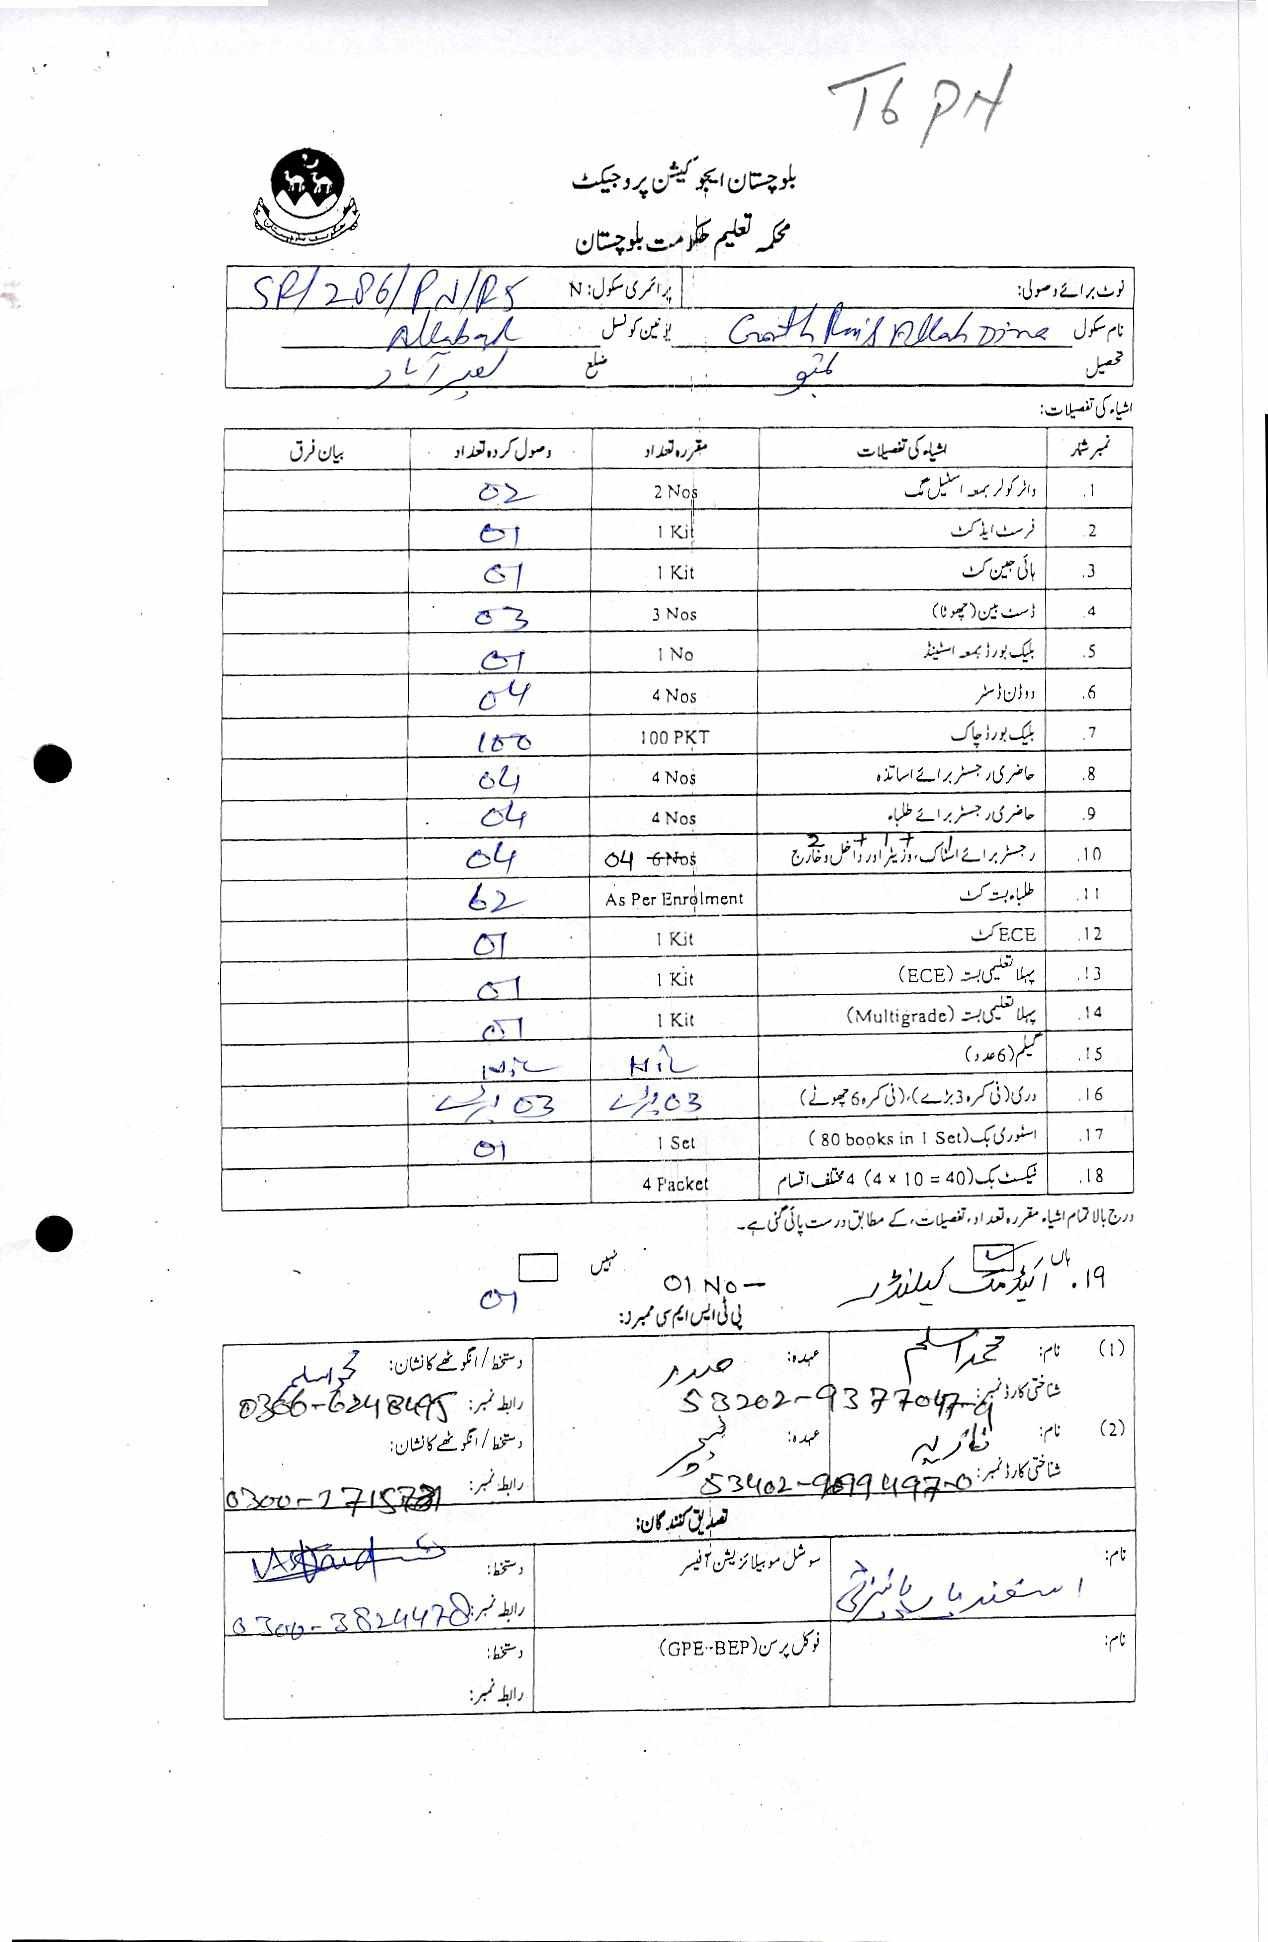 T6 PN
بلوچستان ایجوکیشن پروجیکٹ
محکمہ تعلیم حکومت بلوچستان
نوٹ برائے وصولی: پرائمری سکول: N SR/286/PN/RS
نام سکول Goath Rais Allah Dina یونین کونسل Allabad
تحصیل تمبو ضلع نصیر آباد
اشیاء کی تفصیلات:
نمبر شمار اشیاء کی تفصیلات مقررہ تعداد وصول کردہ تعداد بیان فرق
1. واٹر کولر بمعہ اسٹیل مگ 2 Nos 02
2 فرسٹ ایڈ کٹ 1 Kit 01
3. ہائی جین کٹ 1 Kit 01
4 ڈسٹ بین (چھوٹا) 3 Nos 03
5. بلیک بورڈ بمعہ اسٹینڈ 1 No 01
6. ووڈن ڈسٹر 4 Nos 04
7. بلیک بورڈ چاک 100 PKT 100
8. حاضری رجسٹر برائے اساتذہ 4 Nos 04
9. حاضری رجسٹر برائے طلباء 4 Nos 04
10. رجسٹر برائے اسٹاک، وزیٹر اور داخل و خارج 2 + 1 + 1 04 6 Nos 04
11. طلباء بستہ کٹ As Per Enrolment 62
12. ECE کٹ 1 Kit 01
13. پہلا تعلیمی بستہ (ECE) 1 Kit 01
14. پہلا تعلیمی بستہ (Multigrade) 1 Kit 01
15. گیلم (6 عدد) Nil Nil
16. دری (فی کمرہ 3 بڑے)، (فی کمرہ 6 چھوٹے) 03 بڑے 03 بڑے
17. اسٹوری بک (80 books in 1 Set) 1 Set 01
18. ٹیکسٹ بک (4 x 10 = 40) 4 مختلف اقسام 4 Packet
درج بالا تمام اشیاء مقررہ تعداد، تفصیلات، کے مطابق درست پائی گئی ہے۔
ہاں ✓ نہیں
19. اکیڈمک کیلنڈر 01 No – 01
پی ٹی ایس ایم سی ممبرز:
(1) نام: محمد اسلم عہدہ: صدر دستخط / انگوٹھے کا نشان: محمد اسلم
شناختی کارڈ نمبر: 53202-9377047-9 رابطہ نمبر: 0366-6248495
(2) نام: نازیہ عہدہ: ٹیچر دستخط / انگوٹھے کا نشان:
شناختی کارڈ نمبر: رابطہ نمبر:
تصدیق کنندگان:
نام: اسفندیار سوشل موبیلائزیشن آفیسر دستخط:
رابطہ نمبر: 0300-3824478
نام: فوکل پرسن (GPE-BEP) دستخط:
رابطہ نمبر: